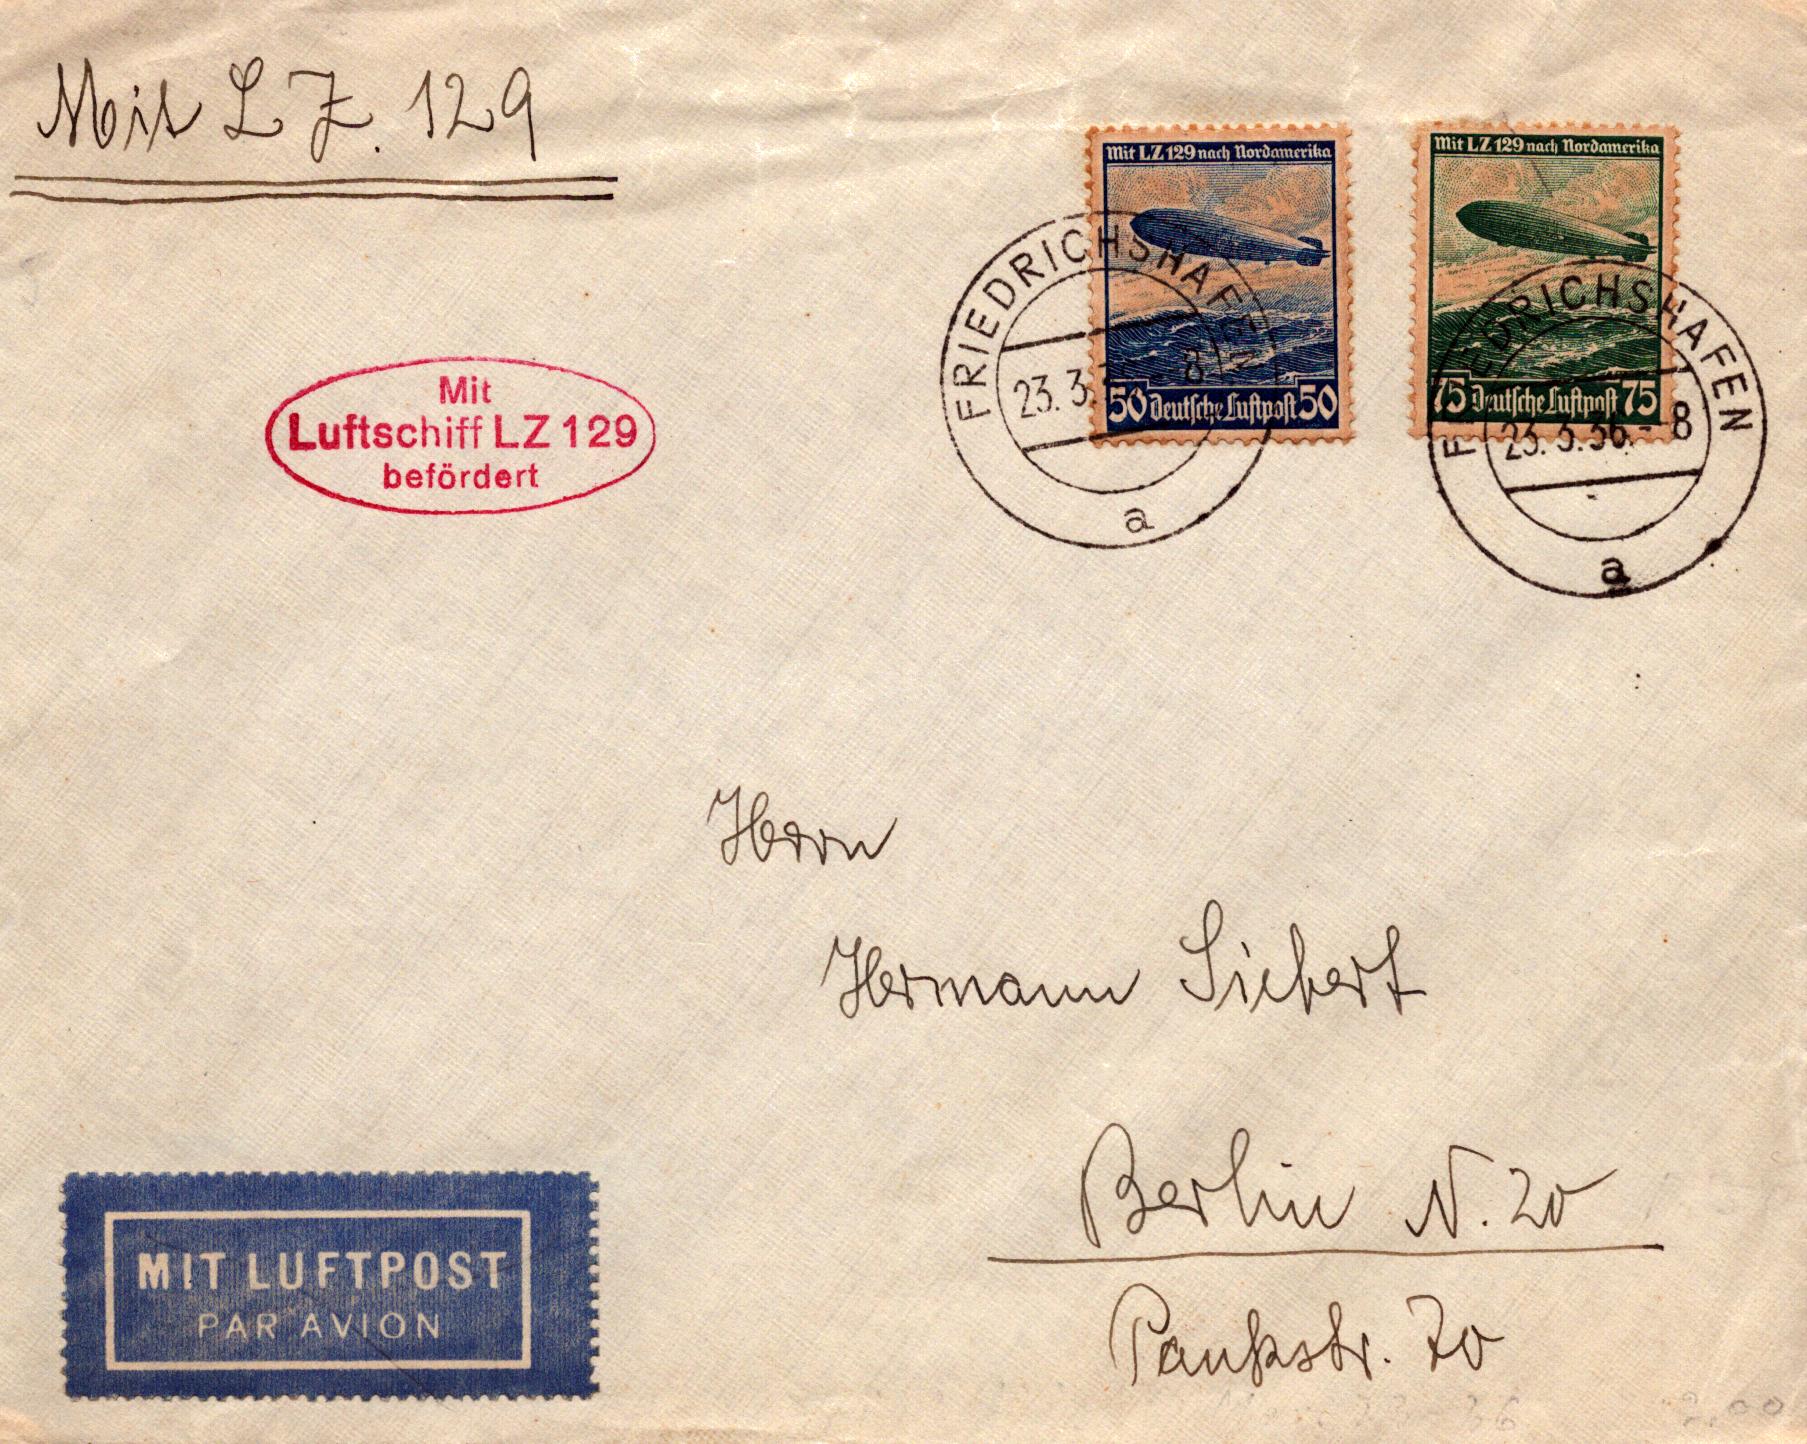 Mit L Z. 129
Mit LZ 129 nach Nordamerika
50 Deutsche Luftpost 50
Mit LZ 129 nach Nordamerika
75 Deutsche Luftpost 75
FRIEDRICHSHAFEN
23.3. 8
a
FRIEDRICHSHAFEN
23.3.36.-8
a
Mit
Luftschiff LZ 129
befördert
Herrn
Hermann Siebert
Berlin N. 20
Pankstr. 70
MIT LUFTPOST
PAR AVION
2.00